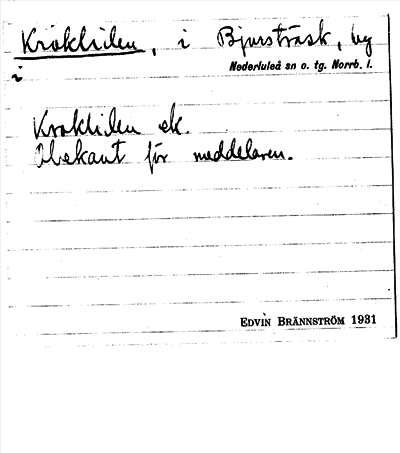 Krokliden, i Bjursträsk, by
i Nederluleå sn o. tg. Norrb. l.
Krokliden ek.
Obekant för meddelaren.
EDVIN BRÄNNSTRÖM 1931